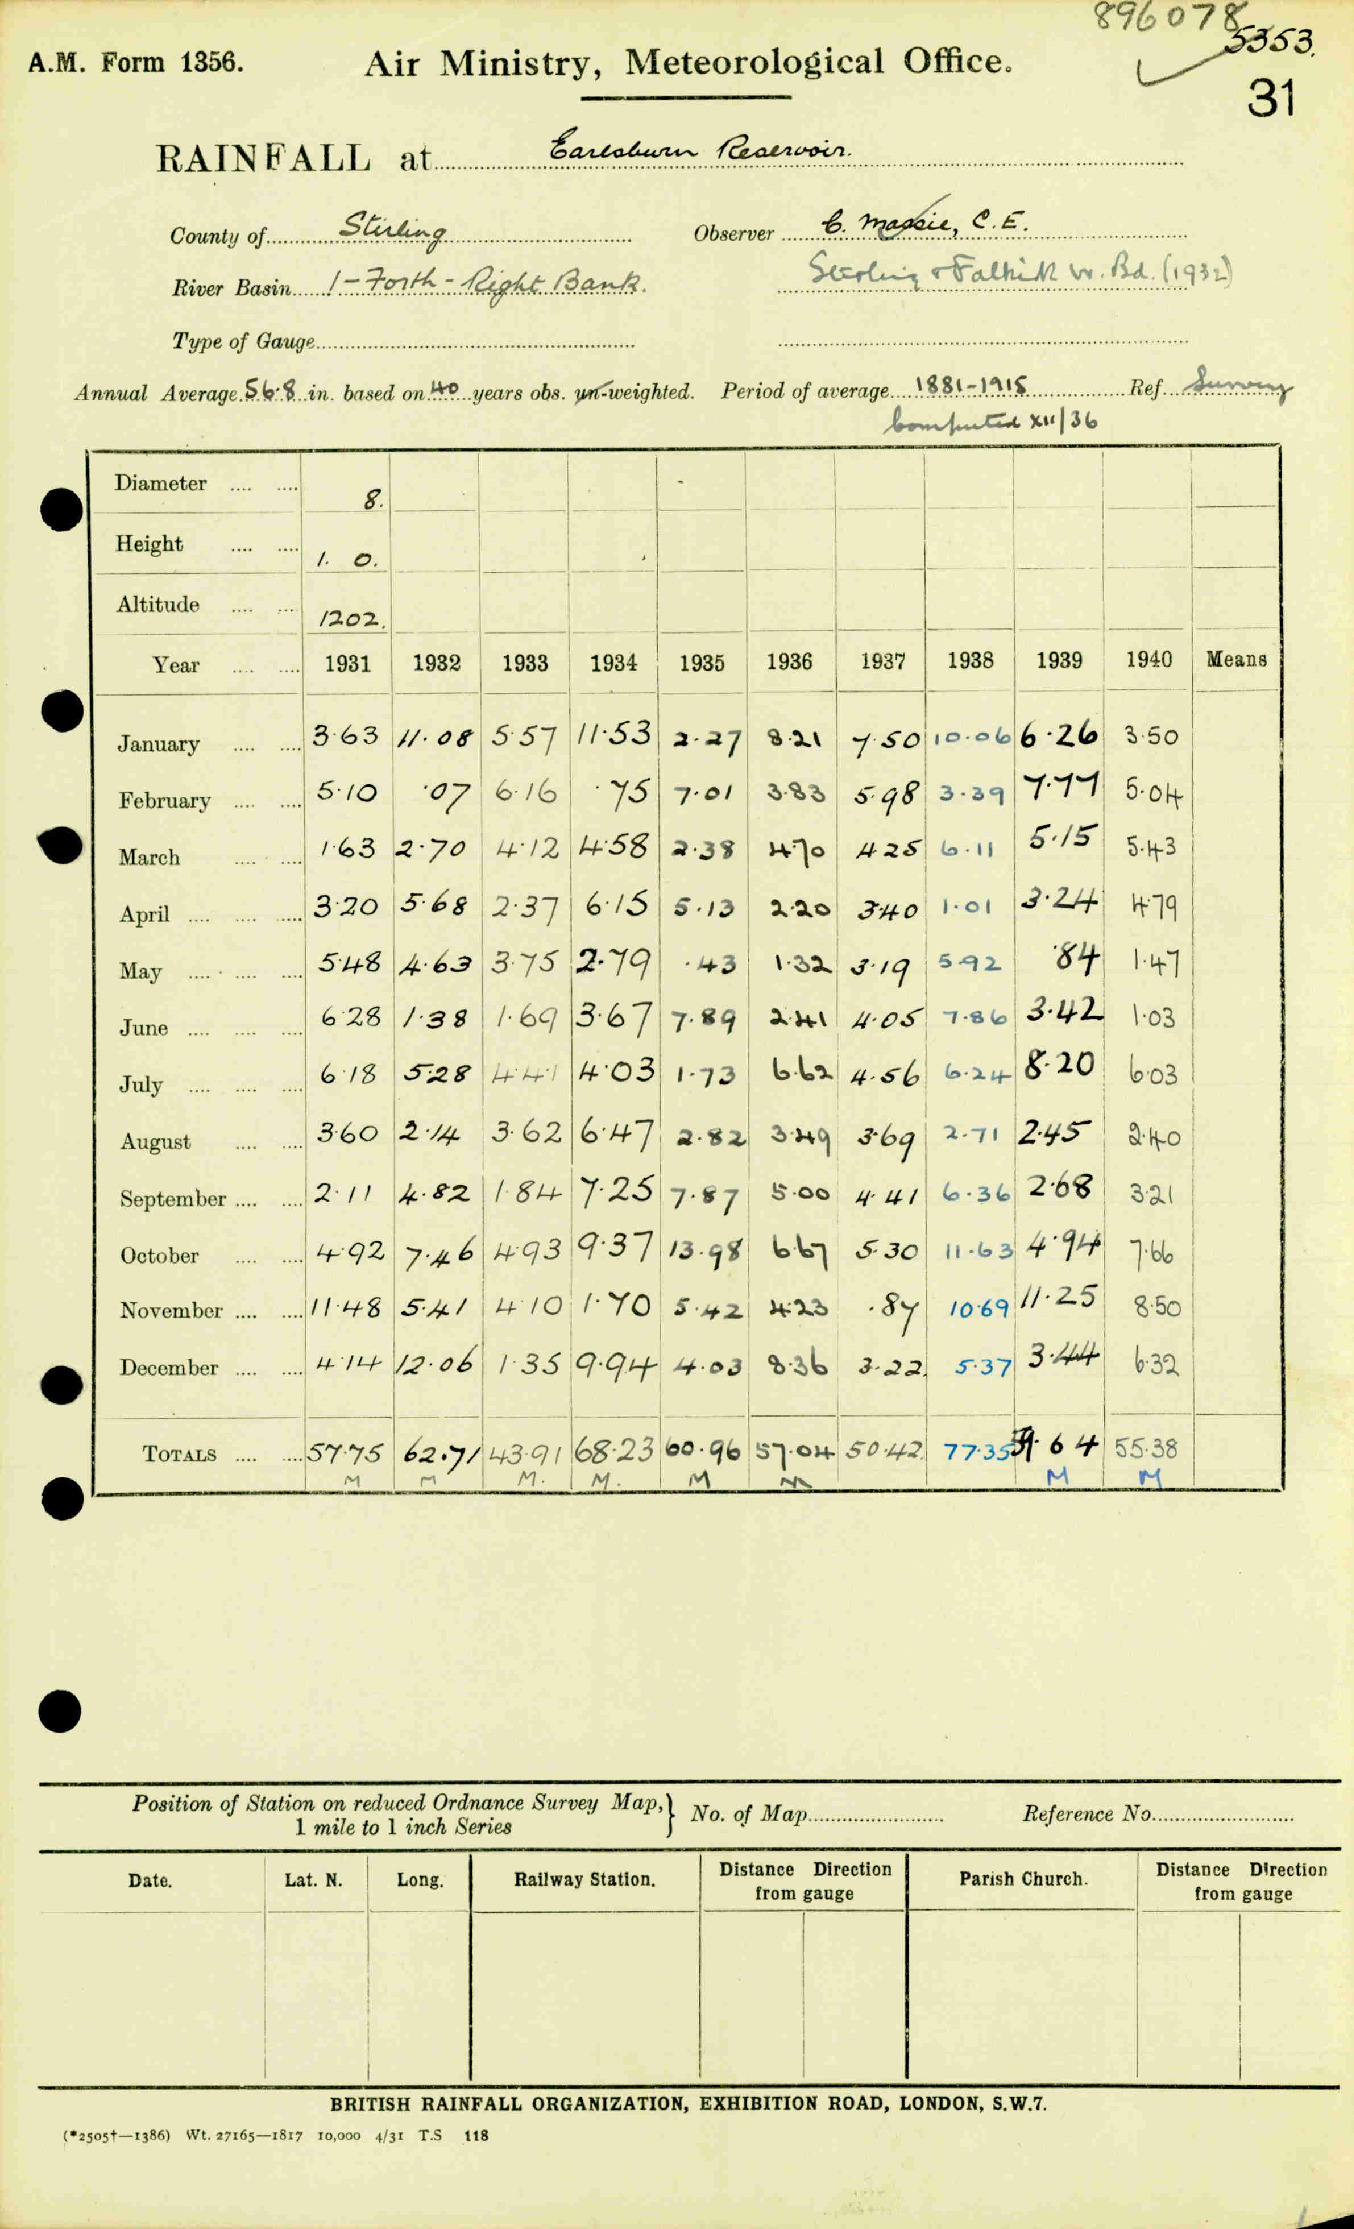 896078
5353.
A.M. Form 1356. Air Ministry, Meteorological Office.
31
RAINFALL at Earlsburn Reservoir.
County of Stirling Observer C. Massie, C.E.
River Basin 1-Forth-Right Bank. Stirling & Falkirk W. Bd. (1932)
Type of Gauge
Annual Average 56.8 in. based on 40 years obs. un-weighted. Period of average 1881-1915 Ref. Survey
Computed XII/36
Diameter 8.
Height 1. 0.
Altitude 1202.
Year 1931 1932 1933 1934 1935 1936 1937 1938 1939 1940 Means
January 3.63 11.08 5.57 11.53 2.27 8.21 7.50 10.06 6.26 3.50
February 5.10 .07 6.16 .75 7.01 3.83 5.98 3.39 7.77 5.04
March 1.63 2.70 4.12 4.58 2.38 4.70 4.25 6.11 5.15 5.43
April 3.20 5.68 2.37 6.15 5.13 2.20 3.40 1.01 3.24 4.79
May 5.48 4.63 3.75 2.79 .43 1.32 3.19 5.92 .84 1.47
June 6.28 1.38 1.69 3.67 7.89 2.41 4.05 7.86 3.42 1.03
July 6.18 5.28 4.41 4.03 1.73 6.62 4.56 6.24 8.20 6.03
August 3.60 2.14 3.62 6.47 2.82 3.49 3.69 2.71 2.45 2.40
September 2.11 4.82 1.84 7.25 7.87 5.00 4.41 6.36 2.68 3.21
October 4.92 7.46 4.93 9.37 13.98 6.67 5.30 11.63 4.94 7.66
November 11.48 5.41 4.10 1.70 5.42 4.23 .87 10.69 11.25 8.50
December 4.14 12.06 1.35 9.94 4.03 8.36 3.22 5.37 3.44 6.32
TOTALS 57.75 62.71 43.91 68.23 60.96 57.04 50.42 77.35 59.64 55.38
M M M. M. M M M M
Position of Station on reduced Ordnance Survey Map, } No. of Map Reference No.
1 mile to 1 inch Series
Date. Lat. N. Long. Railway Station. Distance Direction from gauge Parish Church. Distance Direction from gauge
BRITISH RAINFALL ORGANIZATION, EXHIBITION ROAD, LONDON, S.W.7.
(*2505†—1386) Wt. 27165—1817 10,000 4/31 T.S 118